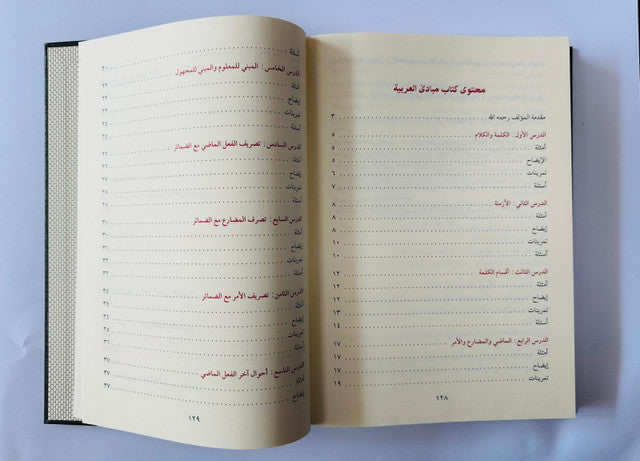 محتوى كتاب مبادئ العربية
مقدمة المؤلف رحمه الله ٣
الدرس الأول: الكلمة والكلام ٥
أمثلة ٥
الإيضاح ٥
تمرينات ٦
أسئلة ٧
الدرس الثاني: الأزمنة ٨
أمثلة ٨
إيضاح ٨
تمرينات ١٠
أسئلة ١٠
الدرس الثالث: أقسام الكلمة ١٢
أمثلة ١٢
إيضاح ١٢
تمرينات ١٣
أسئلة ١٤
الدرس الرابع: الماضي والمضارع والأمر ١٧
أمثلة ١٧
إيضاح ١٧
تمرينات ١٩
١٢٨
أسئلة ٢٠
الدرس الخامس: المبني للمعلوم والمبني للمجهول ٢٢
أمثلة ٢٢
إيضاح ٢٣
تمرينات ٢٤
أسئلة ٢٥
الدرس السادس: تصريف الفعل الماضي مع الضمائر
أمثلة
إيضاح
تمرينات
أسئلة
الدرس السابع: تصرف المضارع مع الضمائر ٣٠
أمثلة ٣٠
إيضاح ٣١
تمرينات
أسئلة ٣٢
الدرس الثامن: تصريف الأمر مع الضمائر
أمثلة ٣٤
إيضاح
تمرينات ٣٥
أسئلة ٣٦
الدرس التاسع: أحوال آخر الفعل الماضي ٣٧
أمثلة ٣٧
إيضاح
١٢٩